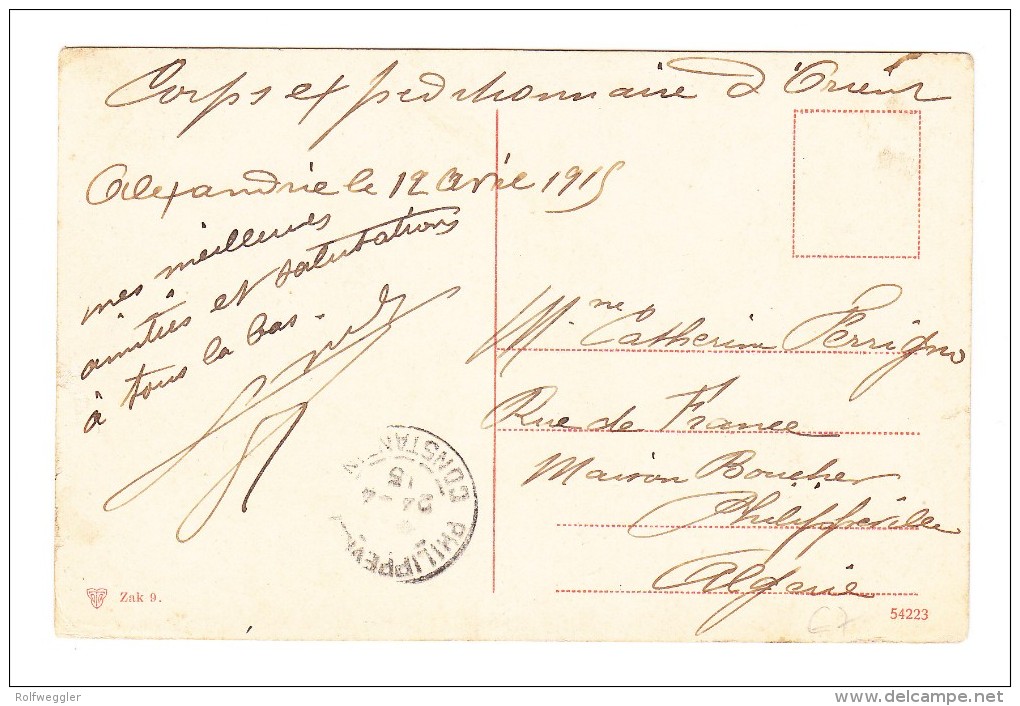 Corps expeditionnaire d'Orient
Alexandrie le 12 Avril 1915
mes meilleures
amitiés et salutations
à tous la bas.
Mme Catherine Ferrigno
Rue de France
Maison Boucher
Philippeville
Algérie
PHILIPPEV
CONSTANTIN
24 - 4
15
Zak 9.
54223
Rolfweggler
www.delcampe.net